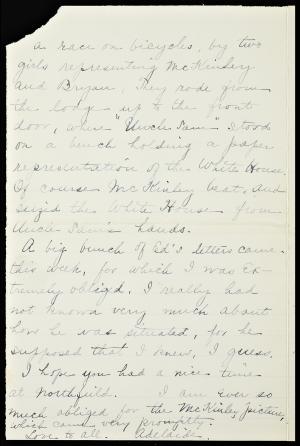 a race on bicycles, by two
girls representing McKinley
and Bryan. They rode from
the lodge up to the front
door, where "Uncle Sam" stood
on a bench holding a paper
representation of the White House.
Of course McKinley beat, and
seized the White House from
Uncle Sam's hands.
A big bunch of Ed's letters came
this week, for which I was ex-
tremely obliged. I really had
not known very much about
how he was situated, for he
supposed that I knew, I guess.
I hope you had a nice time
at Northfield. I am ever so
much obliged for the McKinley picture,
which came very promptly.
Love to all. Adelaide.